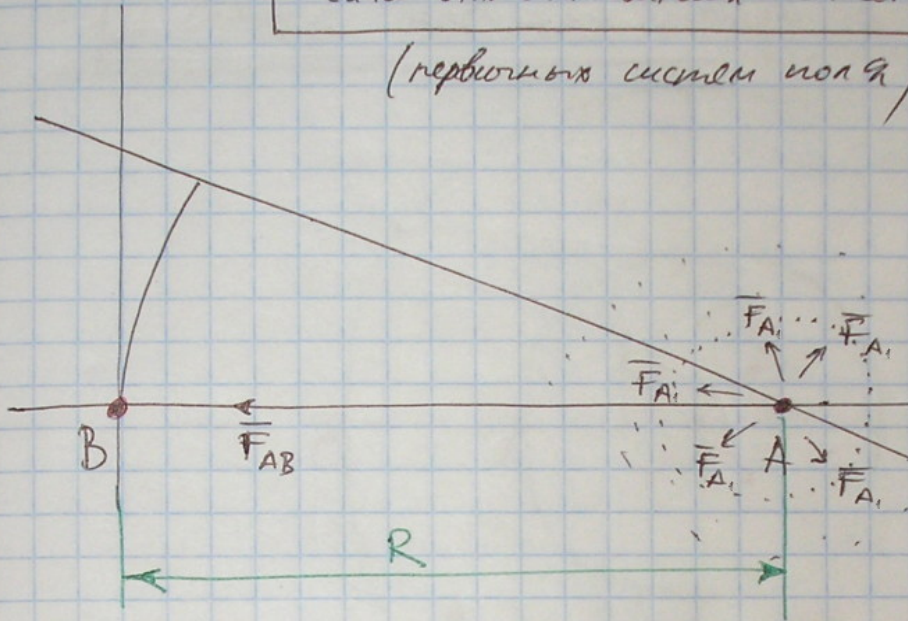 (первичных систем поля)
F̅A₁
F̅A₁
F̅A₁
B
F̅AB
F̅A₁
A
F̅A₁
R